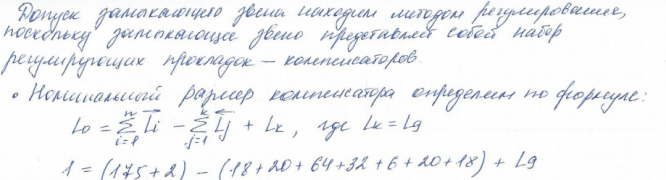 Допуск замыкающего звена находим методом регулирования,
поскольку замыкающее звено представляет собой набор
регулирующих прокладок – компенсаторов.
• Номинальный размер компенсатора определим по формуле:
L₀ = n∑i=1 L⃗i − k∑j=1 L⃖j + Lк, где Lк = L9
1 = (175+2) − (18+20+64+32+6+20+18) + L9